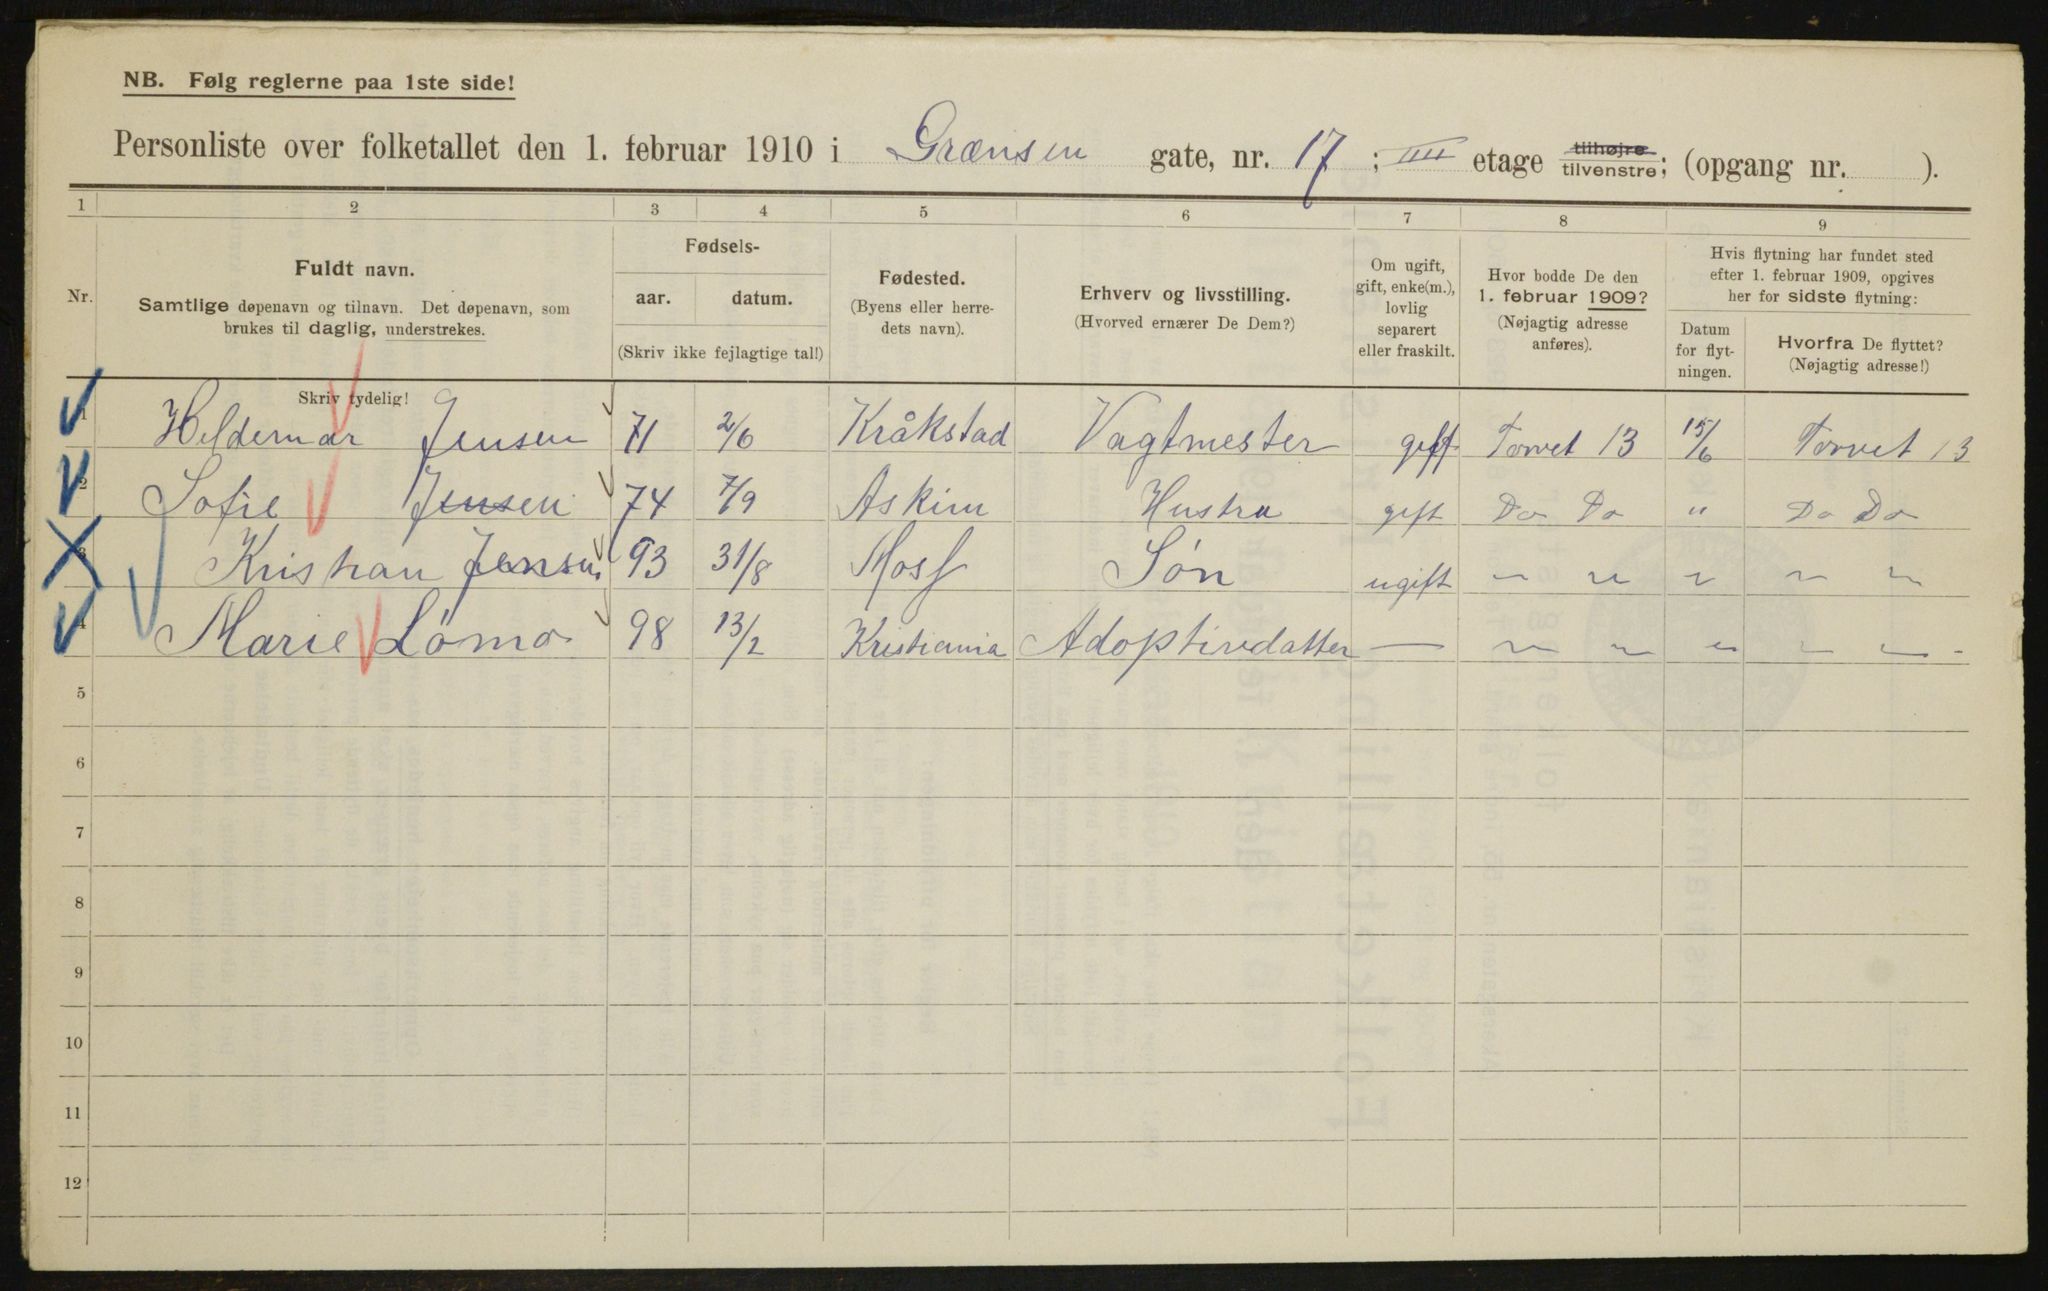 NB. Følg reglerne paa 1ste side!
Personliste over folketallet den 1. februar 1910 i Grænsen gate, nr. 17; IIII etage tilhøjre tilvenstre; (opgang nr. ).
1 2 3 4 5 6 7 8 9
Nr.
Fuldt navn.
Samtlige døpenavn og tilnavn. Det døpenavn, som
brukes til daglig, understrekes.
Skriv tydelig!
Fødsels-
aar. datum.
(Skriv ikke fejlagtige tal!)
Fødested.
(Byens eller herre-
dets navn).
Erhverv og livsstilling.
(Hvorved ernærer De Dem?)
Om ugift,
gift, enke(m.),
lovlig
separert
eller fraskilt.
Hvor bodde De den
1. februar 1909?
(Nøjagtig adresse
anføres).
Hvis flytning har fundet sted
efter 1. februar 1909, opgives
her for sidste flytning:
Datum
for flyt-
ningen.
Hvorfra De flyttet?
(Nøjagtig adresse!)
1 Heldemar Jensen 71 2/6 Kråkstad Vagtmester gift Torvet 13 15/6 Torvet 13
2 Sofie Jensen 74 7/9 Askim Hustru gift Do Do " Do Do
3 Kristian Jensen 93 31/8 Moss Søn ugift " " " " "
4 Marie Lömo 98 13/2 Kristiania Adoptivdatter — " " " " "
5
6
7
8
9
10
11
12